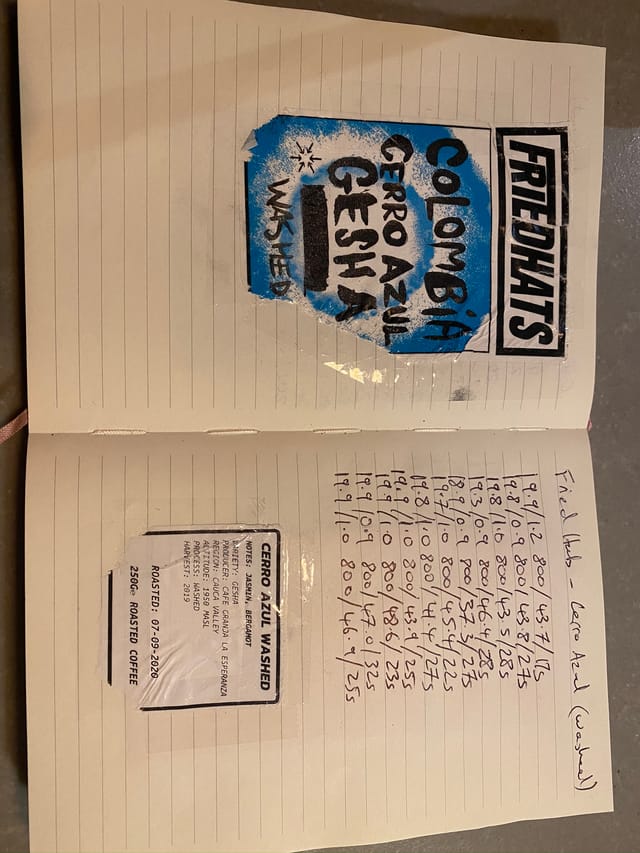 FRIEDHATS
COLOMBIA
CERRO AZUL
GESHA
WASHED
Fried Hats - Cerro Azul (washed)
19.9/1.2 800 43.7/17s
19.8/0.9 800/43.8/27s
19.8/1.0 800/43.5/28s
19.3/0.9 800/46.4/28s
18.9/0.9 800/37.3/27s
19.7/1.0 800/45.4/22s
19.8/1.0 800/41.4/27s
19.9/1.0 800/43.9/25s
19.9/1.0 800/48.6/23s
19.9/0.9 800/47.0/32s
19.9/1.0 800/46.9/25s
CERRO AZUL WASHED
NOTES: JASMIN, BERGAMOT
VARIETY: GESHA
PRODUCER: CAFE GRANJA LA ESPERANZA
REGION: CAUCA VALLEY
ALTITUDE: 1950 MASL
PROCESS: WASHED
HARVEST: 2019
ROASTED: 07-09-2020
250G℮ ROASTED COFFEE